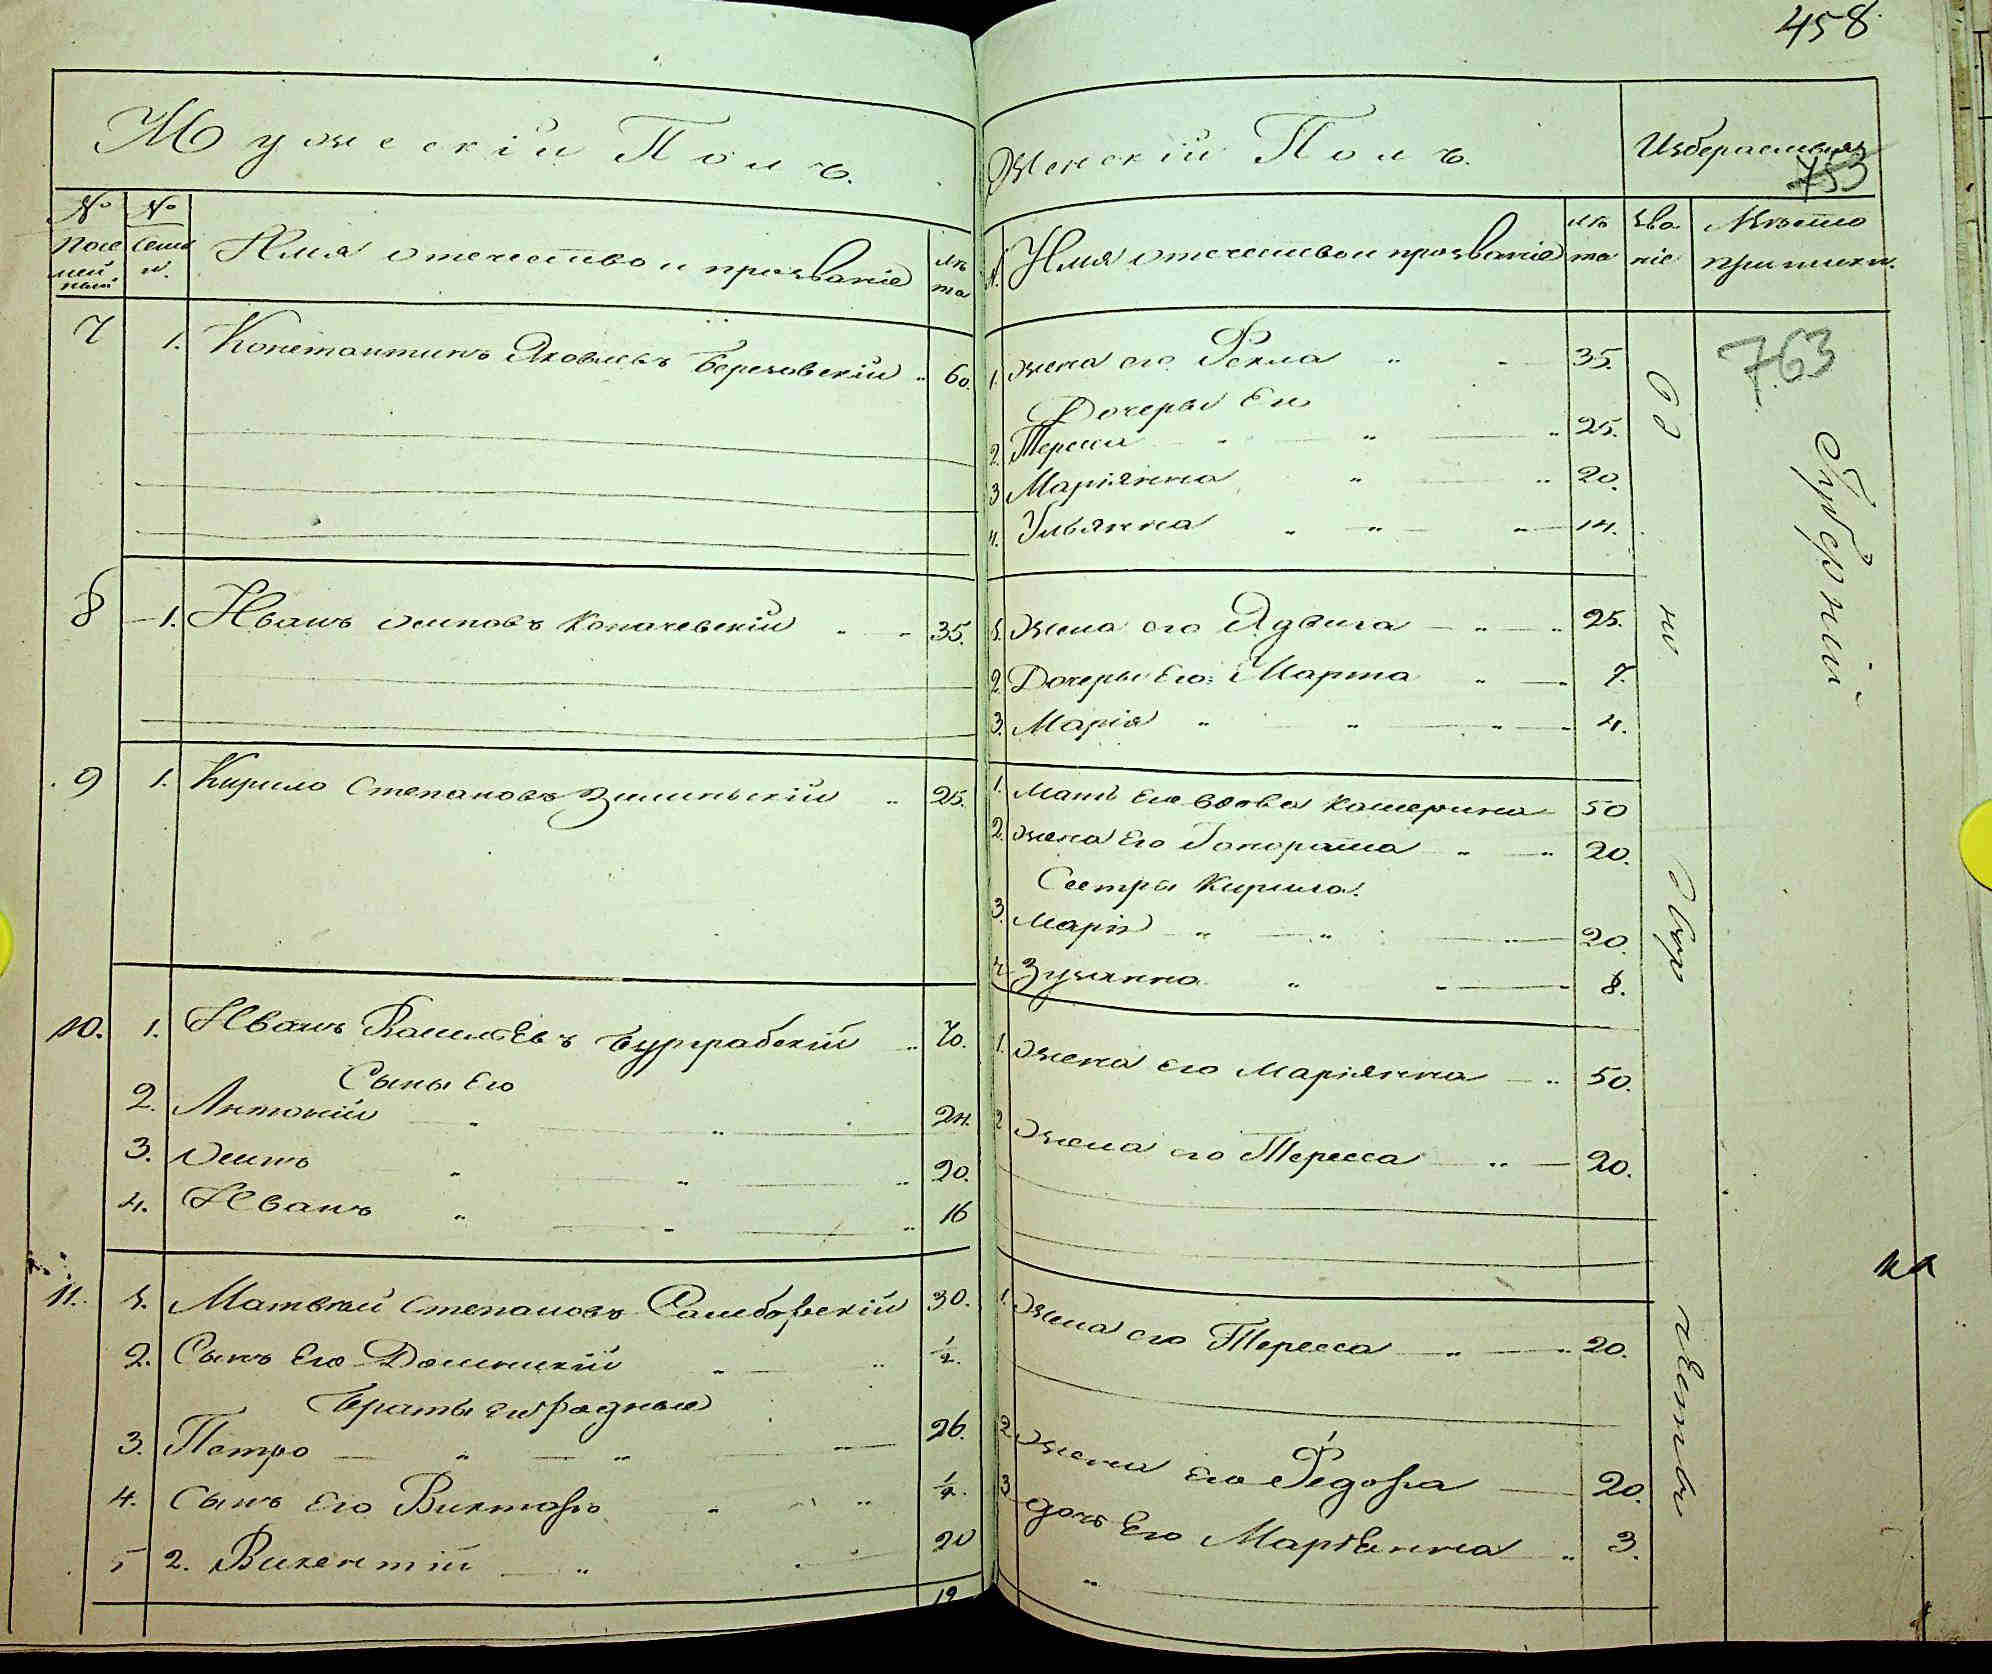 458
Мужескій Полъ.
№ посемейный
№ семьи.
Имя отечество и прозваніе
лѣта
7 1. Константинъ Яковлевъ Березовскій 60.
8 1. Иванъ Осиповъ Копачевскій 35.
9 1. Кирило Степановъ 25.
10. 1. Иванъ Васильевъ Бурграбскій 70.
Сыны Его
2. Антоній 24.
3. Осипъ 20.
4. Иванъ 16
11. 1. Матвѣй Степановъ Самборскій 30.
2. Сынъ Его Доминикій 1/2.
Браты его родные
3. Петро 26.
4. Сынъ Его Викторъ 1/2.
5 2. Викентій 20
12
Женскій Полъ.
Избираемыя
753
№
Имя отечество и прозваніе
лѣта
званіе
Мѣсто приписки.
763
1. жена его Фекла 35.
Дочеры Его
2. Тересса 25.
3 Маріянна 20.
4. Ульянна 14.
1. жена его Ядвига 25.
2. Дочеры Его: Марта 7.
3. Марія 4.
1. Мать Его вдова Катерина 50
2. жена Его Гонората 20.
Сестры Кирила:
3. Марія 20.
4. Зузанна 8.
1. жена его Маріянна 50.
2 жена его Тересса 20.
1. жена его Тересса 20.
2 жена Его Федора 20.
3 дочь Его Маріянна 3.
Губерніи